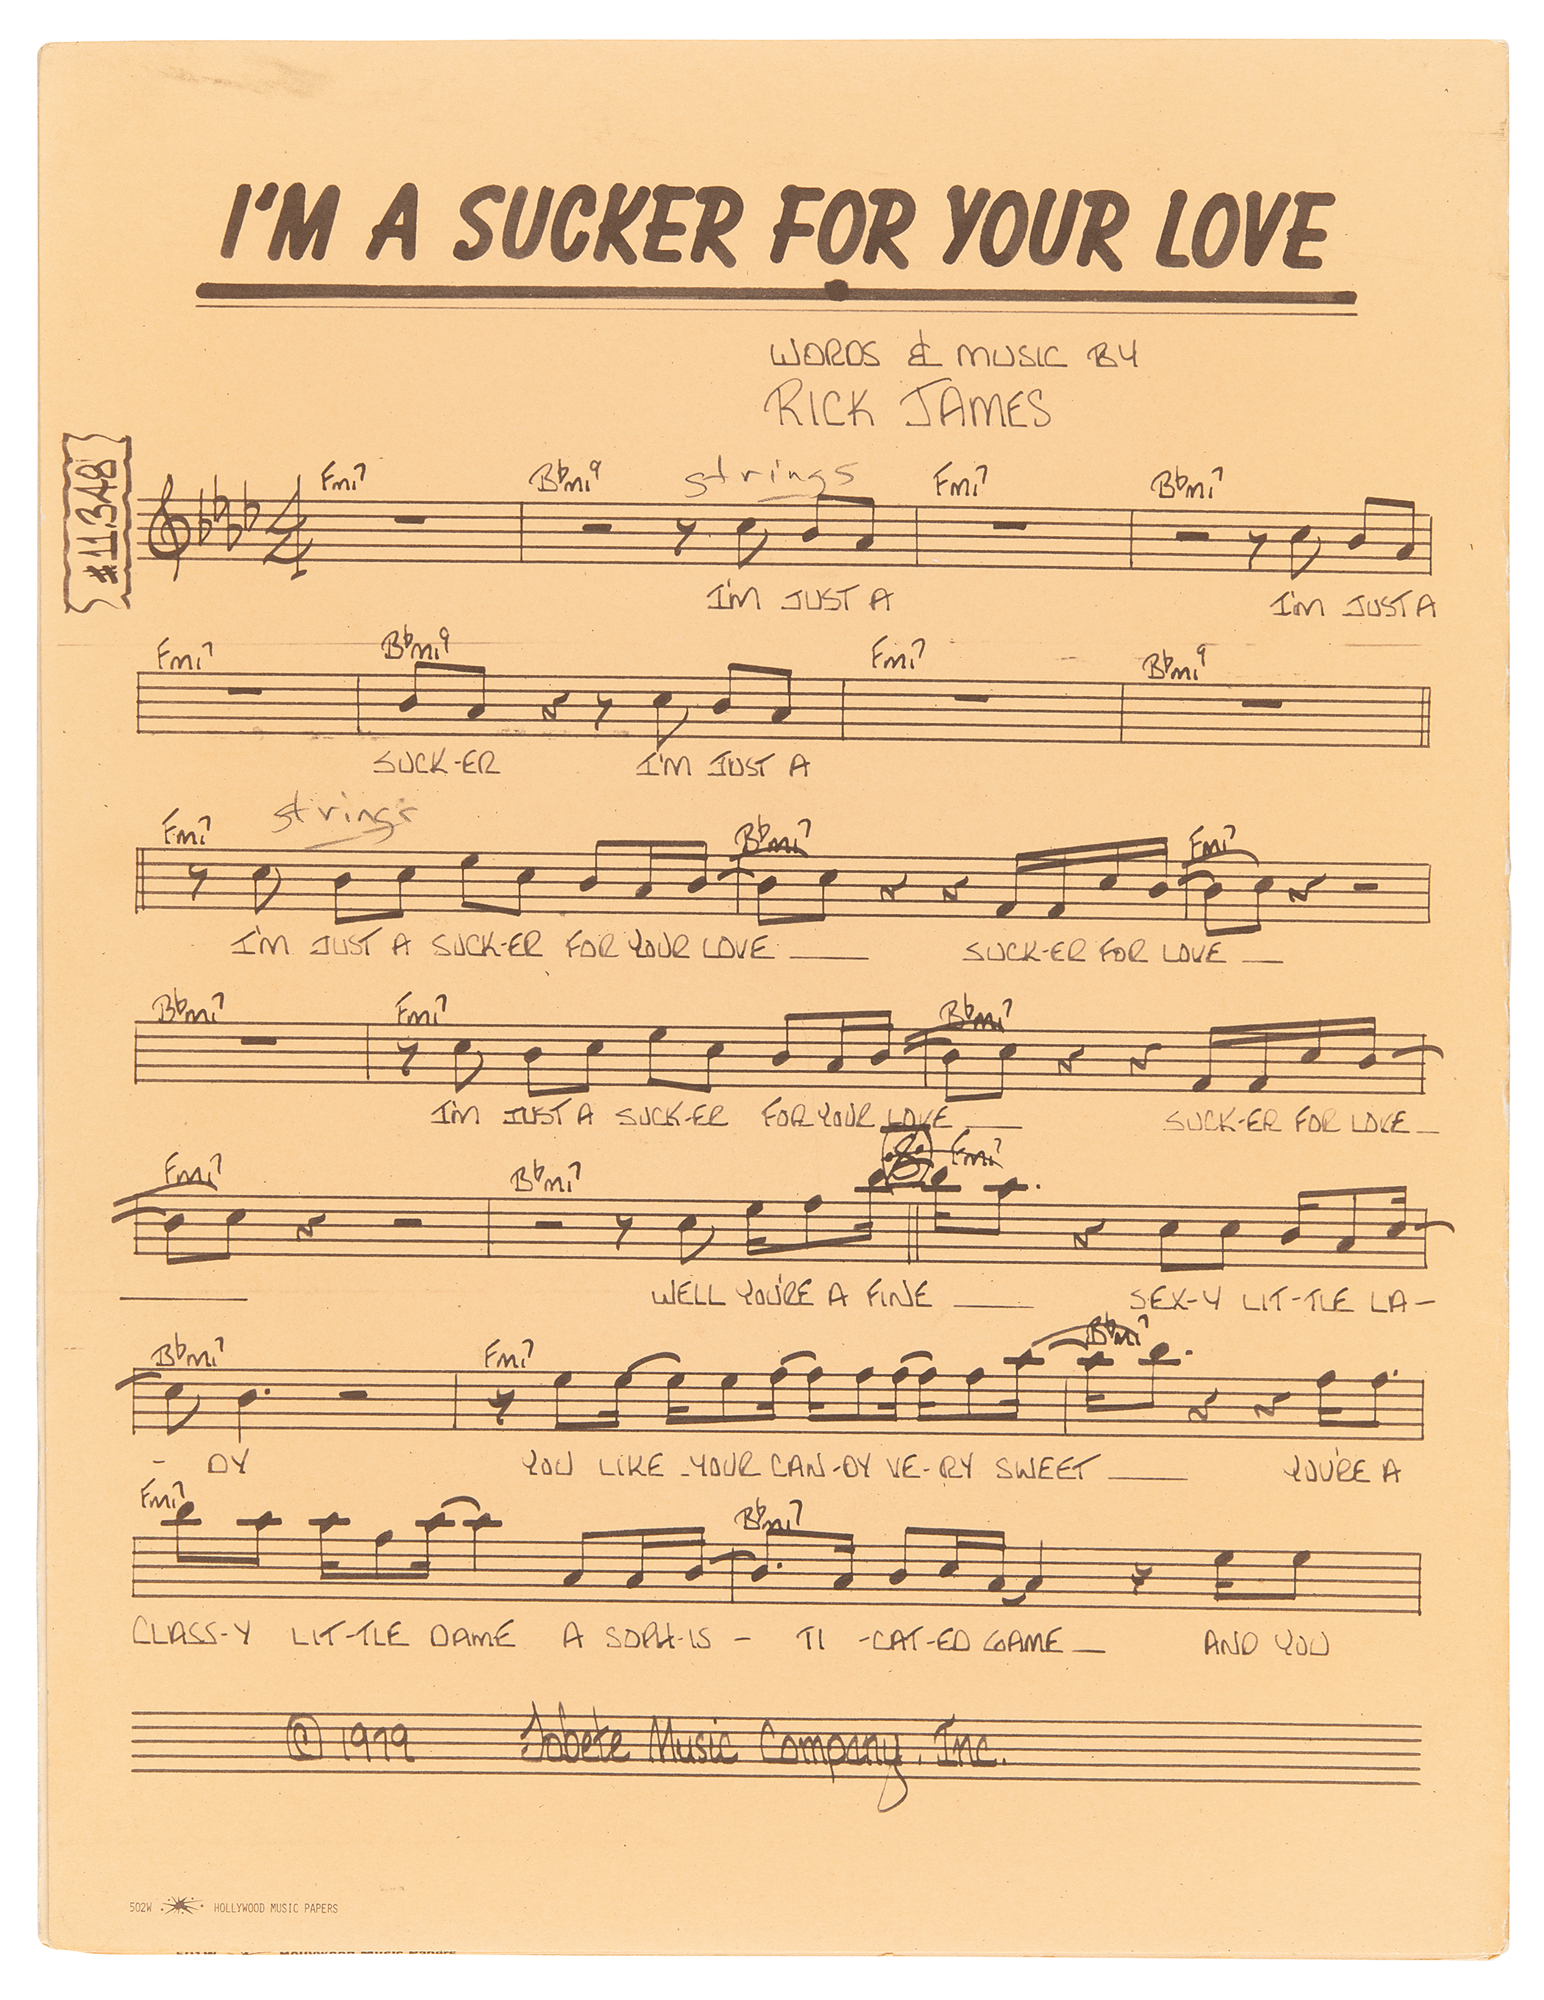 I'M A SUCKER FOR YOUR LOVE
WORDS & MUSIC BY
RICK JAMES
#11.348
Fmi7 B♭mi9 strings Fmi7 B♭mi7
I'M JUST A I'M JUST A
Fmi7 B♭mi9 Fmi7 B♭mi9
SUCK-ER I'M JUST A
strings
Fmi7 B♭mi7 Fmi7
I'M JUST A SUCK-ER FOR YOUR LOVE ___ SUCK-ER FOR LOVE __
B♭mi7 Fmi7 B♭mi7
I'M JUST A SUCK-ER FOR YOUR LOVE ___ SUCK-ER FOR LOVE _
Fmi7 B♭mi7 Fmi7
___ WELL YOU'RE A FINE ___ SEX-Y LIT-TLE LA-
B♭mi7 Fmi7 B♭mi7
- DY YOU LIKE YOUR CAN-DY VE-RY SWEET ___ YOU'RE A
Fmi7 B♭mi7
CLASS-Y LIT-TLE DAME A SOPH-IS - TI -CAT-ED GAME __ AND YOU
© 1979 Jobete Music Company, Inc.
502W HOLLYWOOD MUSIC PAPERS